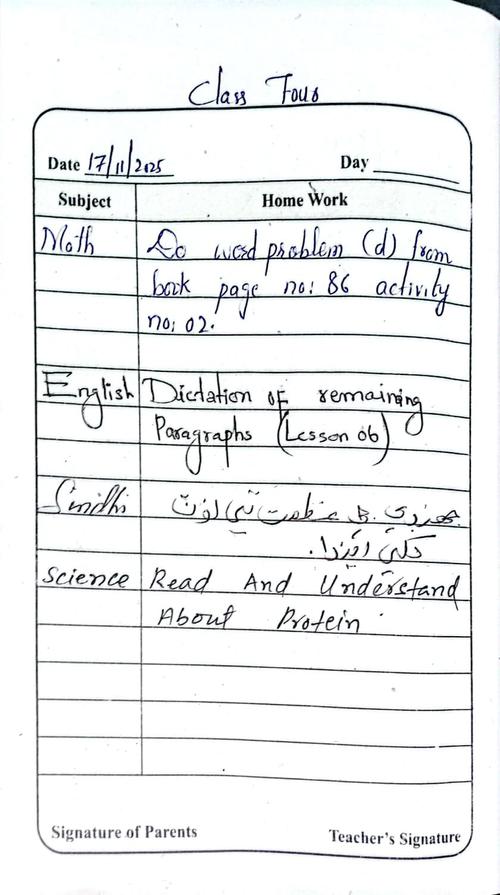 Class Four
Date 17/11/2025 Day
Subject Home Work
Math Do word problem (d) from
book page no: 86 activity
no: 02.
English Dictation of remaining
Paragraphs (Lesson 06)
Sindhi عظمت تي نوٽ
لکي ايندا.
Science Read And Understand
About Protein
Signature of Parents Teacher's Signature